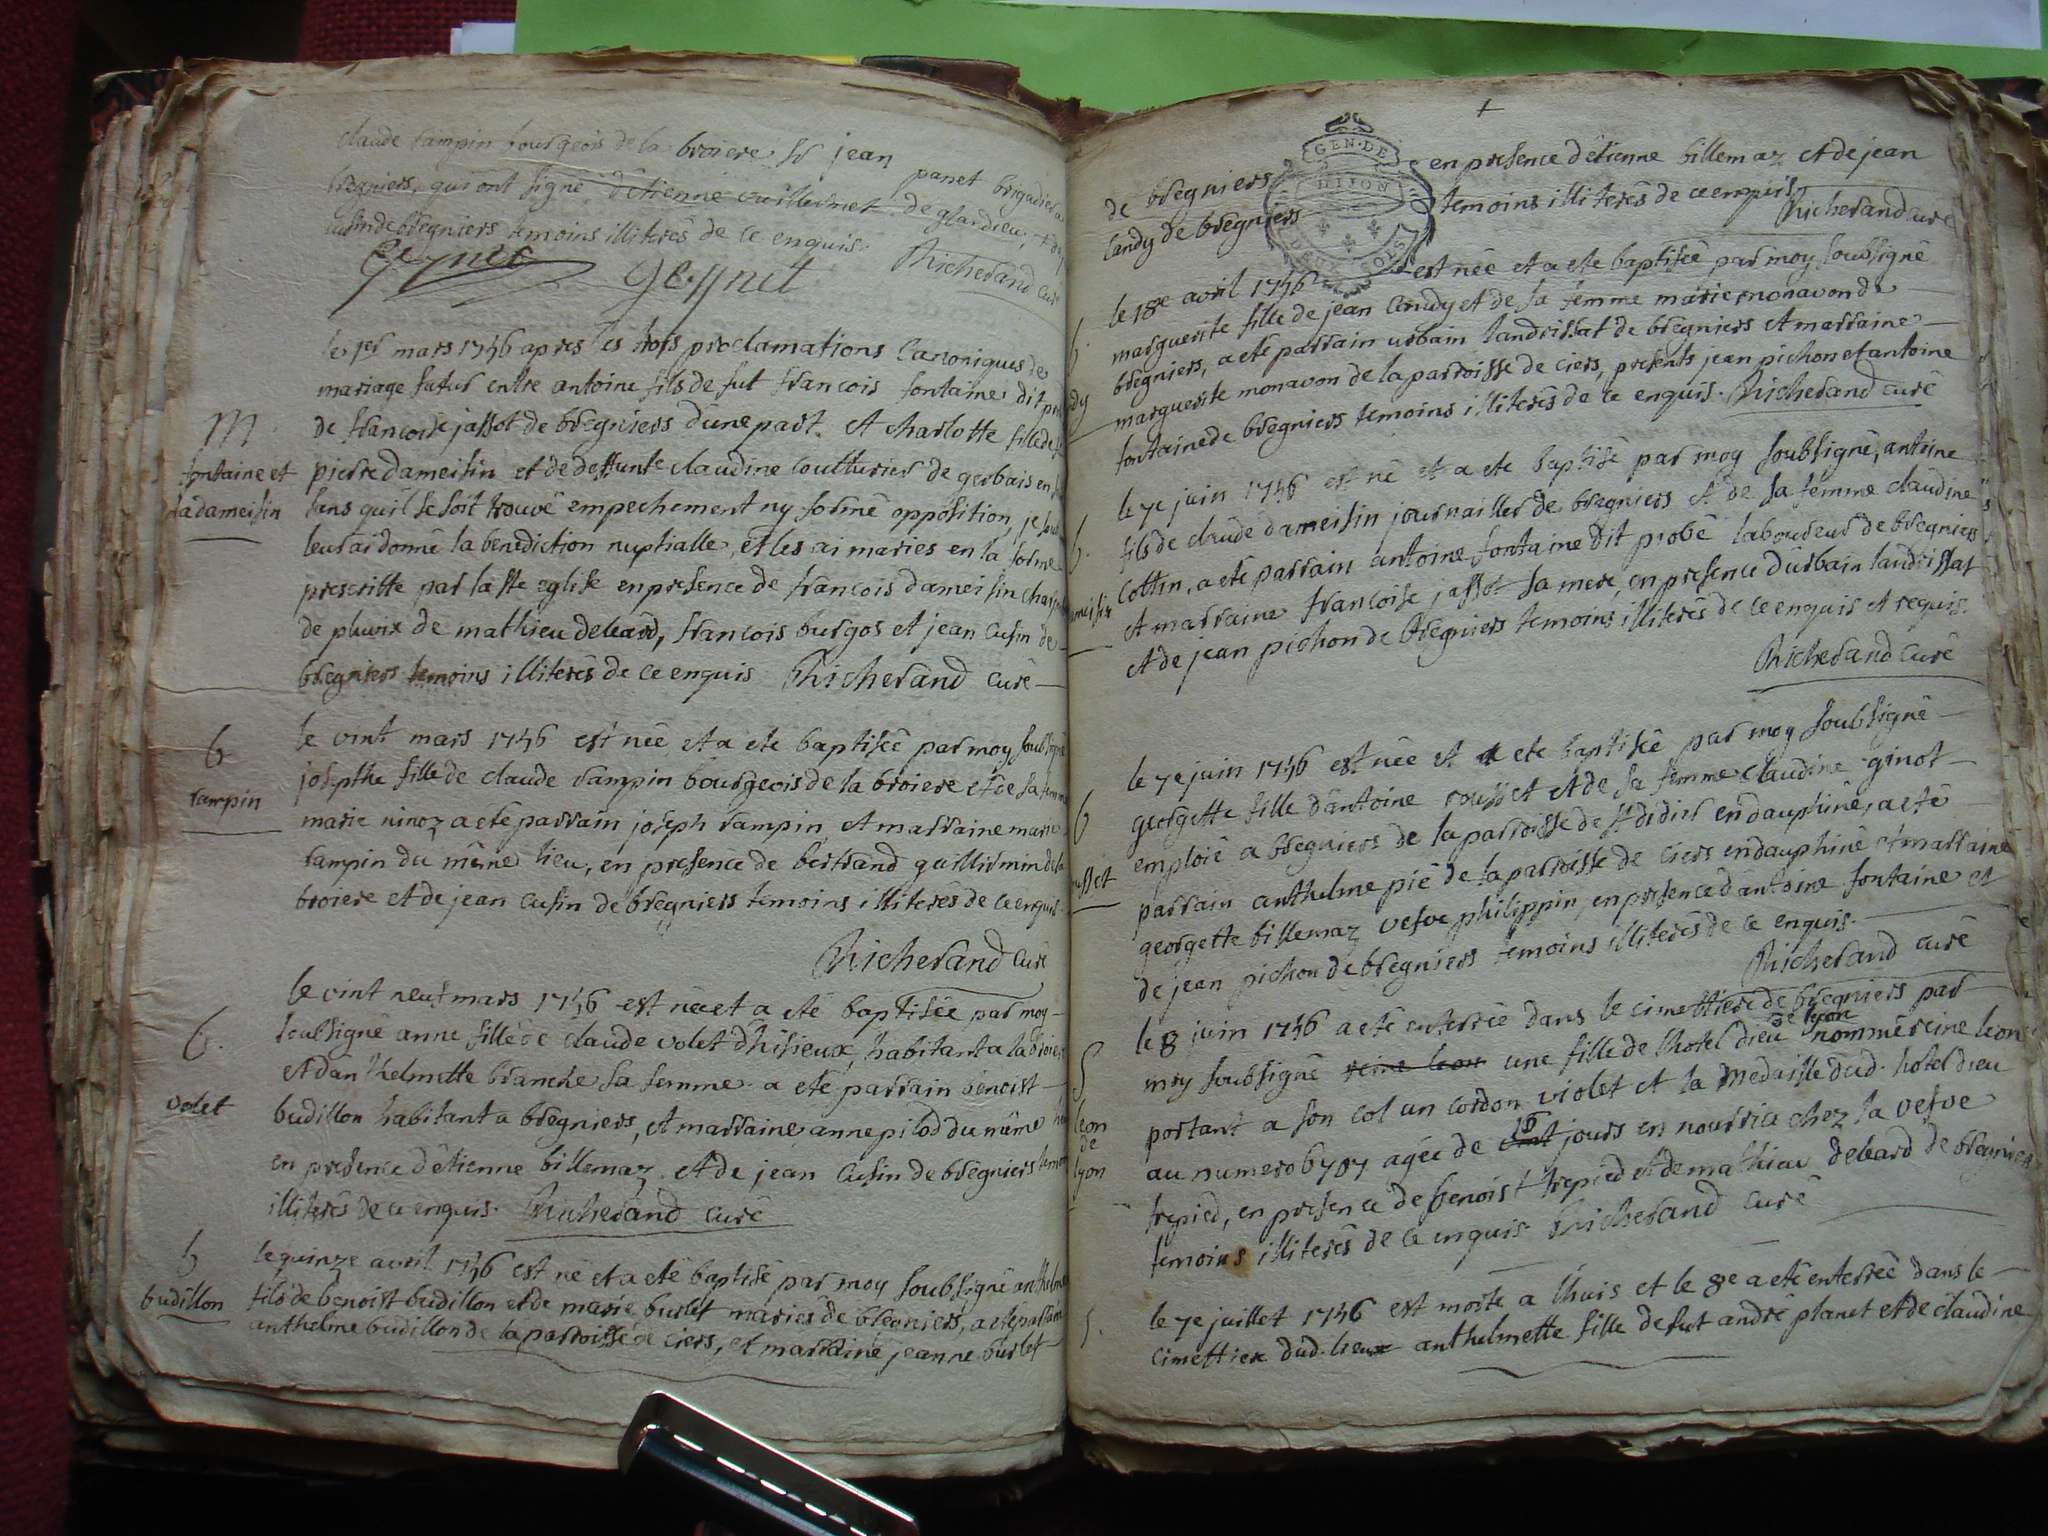 claude rampin bourgeois de la broiere sr jean panet brigadier a
bregniers, qui ont signé d'étienne de glandieu,
de bregniers temoins illiterés de ce enquis. Richerand curé
le 1er mars 1746 apres les trois proclamations canoniques des
mariage futur entre antoine fils de fut francois fontaine dit
de francoise jassot de bregniers d'une part. et charlotte fille de
M
fontaine et
dameisin
pierre dameisin et de deffunte claudine coutturier de gerbais en
sans quil se soit trouvé empechement ny formé opposition, je
leur ai donné la benediction nuptialle, et les ai maries en la forme
prescritte par la ste eglise en presence de francois dameisin
de mathieu debard, francois burgos et jean cusin de
bregniers temoins illiterés de ce enquis Richerand curé
b
rampin
le vint mars 1746 est née et a eté baptisée par moy soubsigné
josepthe fille de claude rampin bourgeois de la broiere et de sa femme
marie ninoz a eté parrain joseph rampin et marraine marie
rampin du même lieu, en presence de bertrand guillermin de la
broiere et de jean cusin de bregniers temoins illiterés de ce enquis
Richerand curé
b.
volet
le vint neuf mars 1746 est née et a eté baptisée par moy
soubsigné anne fille de claude volet d'hisieux, habitant a la broiere
et d'anthelmette branche sa femme a eté parrain benoist
budillon habitant a bregniers, et marraine anne pilod du même
en presence d'étienne billemaz et de jean cusin de bregniers temoins
illiterés de ce enquis. Richerand curé
b
budillon
le quinze avril 1746 est né et a eté baptisé par moy soubsigné anthelme
fils de benoist budillon et de marie burlet maries de bregniers, a eté parrain
anthelme budillon de la parroisse de ciers, et marraine jeanne burlet
GEN·DE
DIJON
de bregniers en presence d'étienne billemaz et de jean
landy de bregniers temoins illiterés de ce enquis
Richerand curé
le 18e avril 1746 est née et a eté baptisée par moy soubsigné
marguerite fille de jean landy et de sa femme marie monavon de
bregniers, a eté parrain urbain landrissat de bregniers et marraine
marguerite monavon de la parroisse de ciers, presents jean pichon et antoine
fontaine de bregniers temoins illiterés de ce enquis. Richerand curé
b.
le 7e juin 1746 est né et a eté baptisé par moy soubsigné, antoine
fils de claude dameisin journallier de bregniers et de sa femme claudine
cottin, a eté parrain antoine fontaine dit probé laboureur de bregniers
et marraine francoise jassot sa mere, en presence d'urbain landrissat
et de jean pichon de bregniers temoins illiterés de ce enquis et requis.
Richerand curé
b
le 7e juin 1746 est née et a eté baptisée par moy soubsigné
georgette fille d'antoine rousset et de sa femme claudine ginot
emploié a bregniers de la parroisse de st didier en dauphiné, a eté
parrain anthelme pié de la parroisse de ciers en dauphiné et marraine
georgette billemaz vefve philippin, en presence d'antoine fontaine et
de jean pichon de bregniers temoins illiterés de ce enquis.
Richerand curé
S
leon
de
lyon
le 8 juin 1746 a eté enterrée dans le cimettiere de bregniers par
moy soubsigné reine leon une fille de l'hotel dieu de lyon nommé reine leon
portant a son col un cordon violet et la medaille dud. hotel dieu
au numero 6707 agée de 18 jours en nourrice chez la vefve
trepied, en presence de benoist trepied et de mathieu debard de bregniers
temoins illiterés de ce enquis. Richerand curé
S.
le 7e juillet 1746 est morte a l'huis et le 8e a eté enterrée dans le
cimettiere dud. lieux anthelmette fille de fut andré planet et de claudine